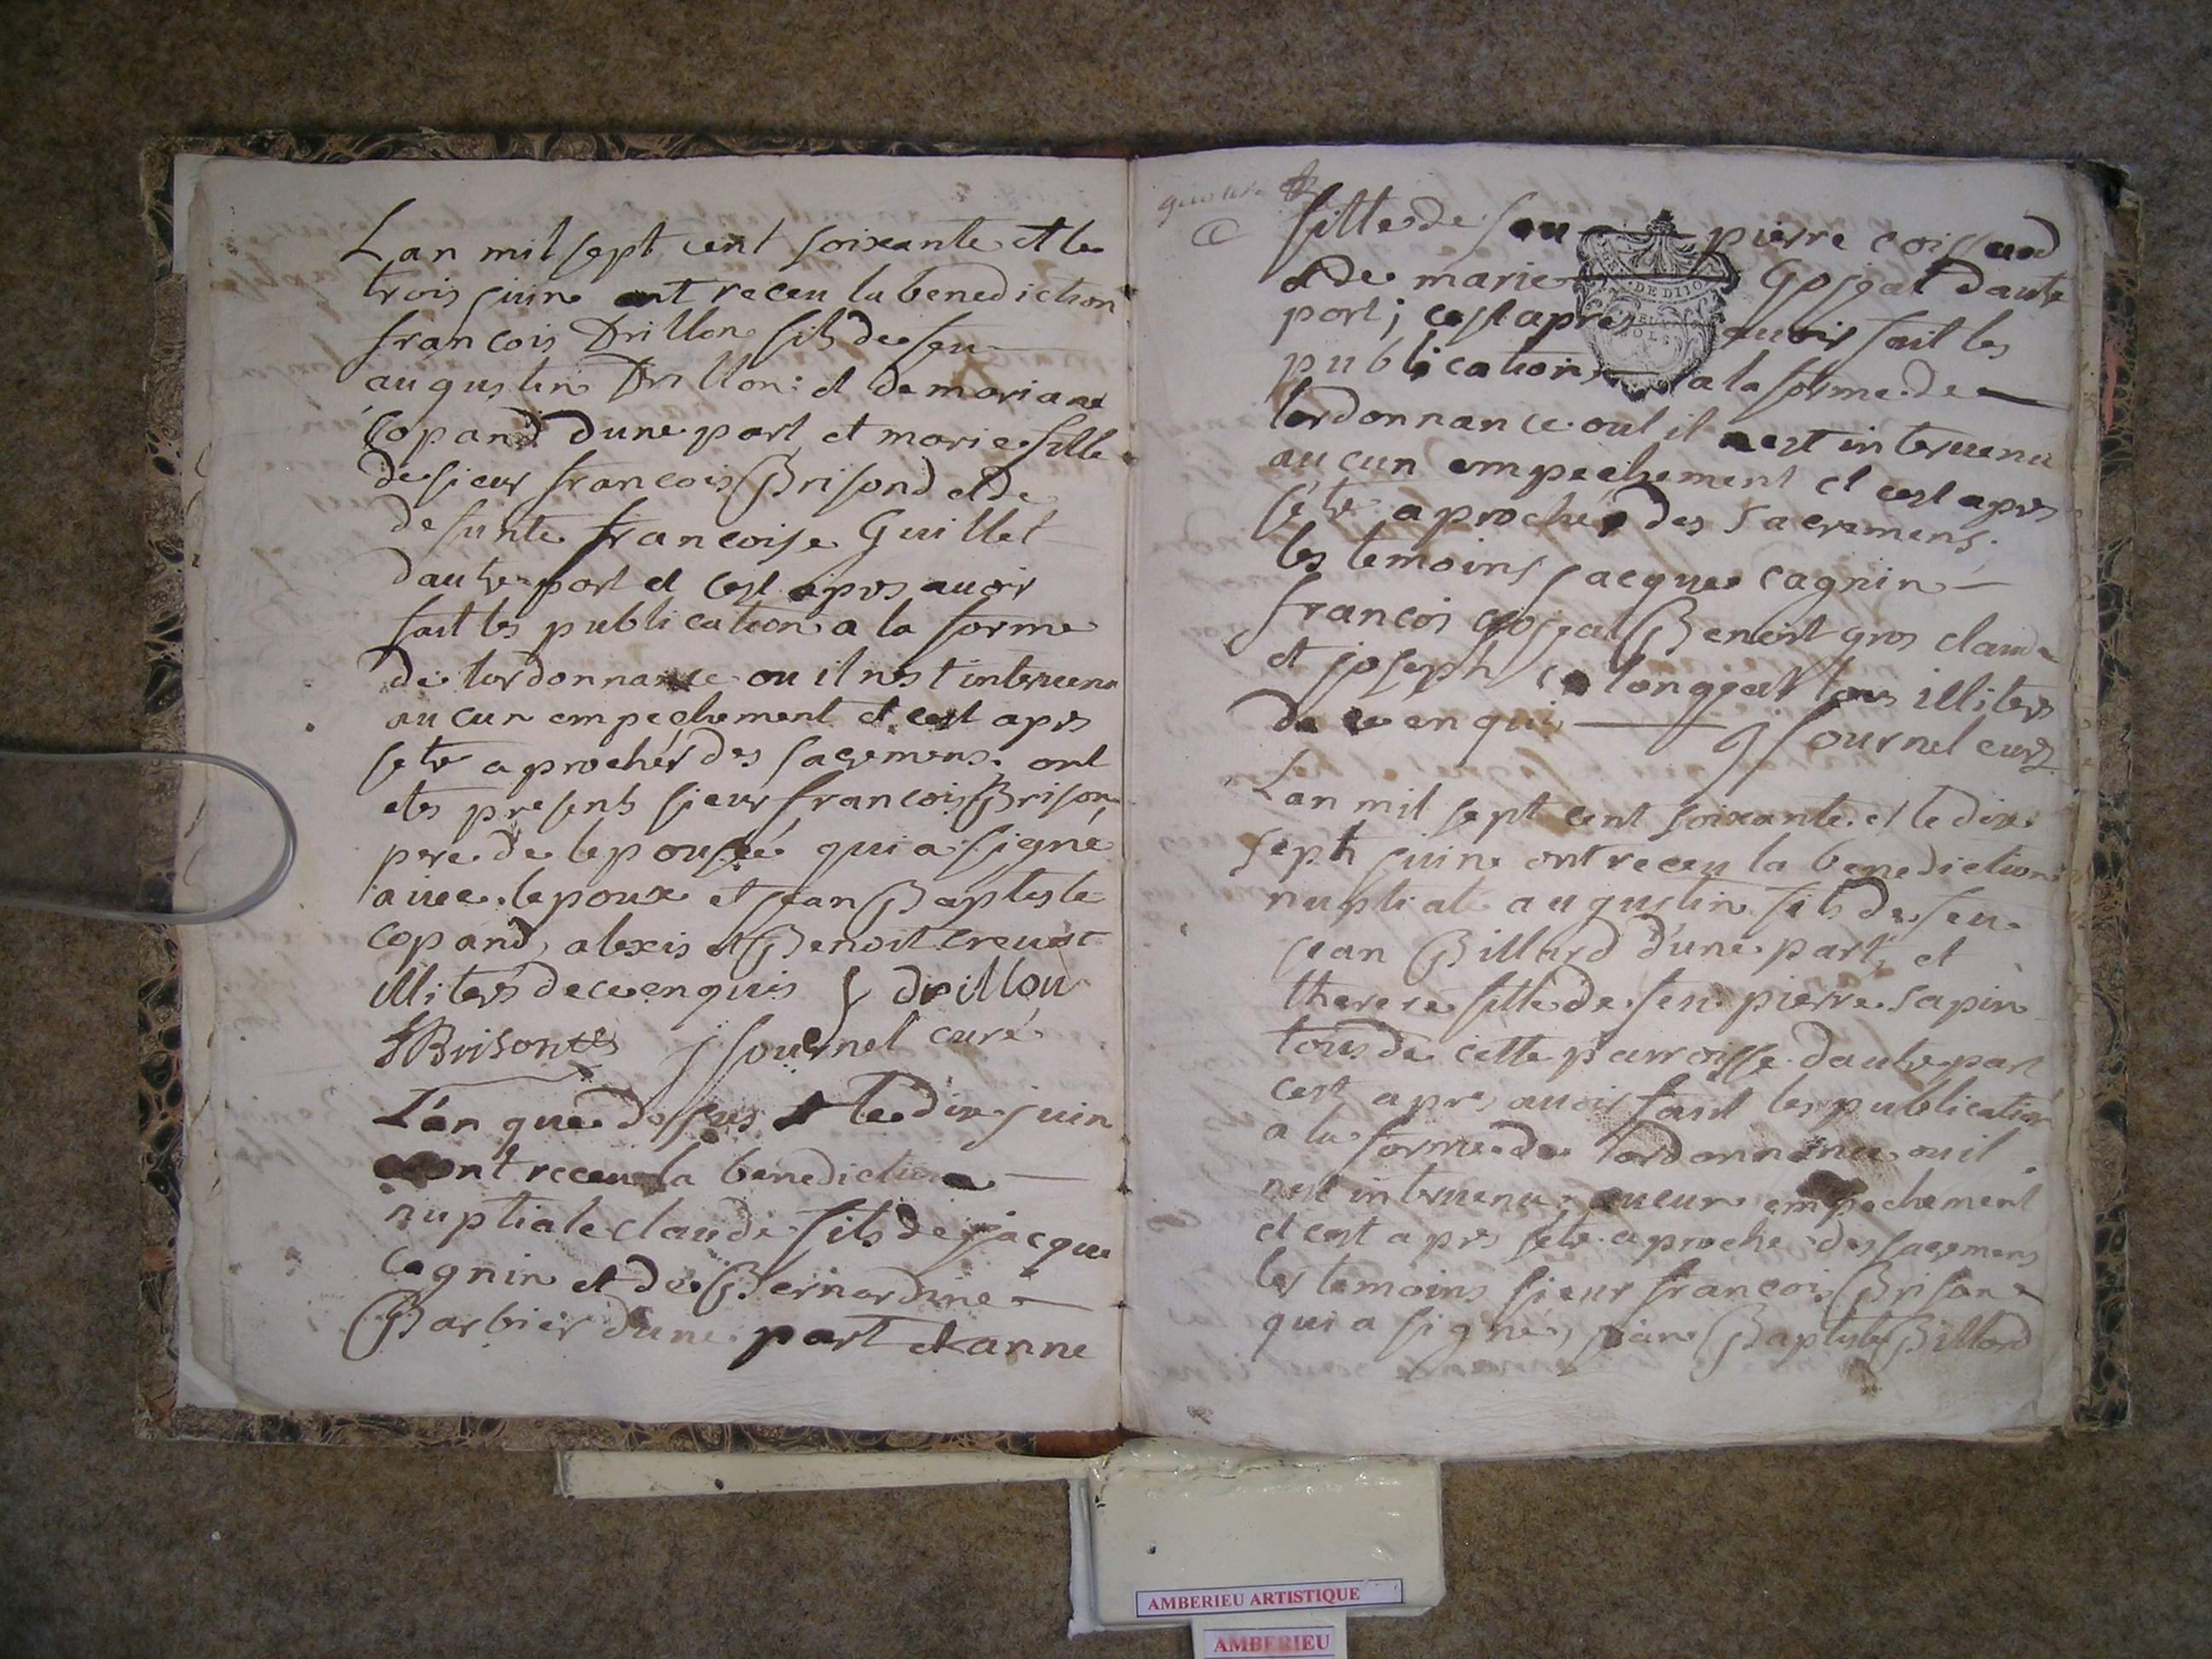 Lan mil sept cent soixante et le
trois juin ont receu la benediction
francois Drillon fils de feu
augustin Drillon et de mariane
Copand dune part et marie fille
de sieur francois Brisond et de
defunte francoise Guillet
dautre part et cest apres auoir
fait les publication a la forme
de lordonnance ou il nest interuenu
aucun empechement et cest apres
setre aprochér des sacremens. ont
etes presents sieur francois Brison
pere de lepouseé qui a signé
auec lepoux et jean Baptiste
copand, alexis et Benoit creust
illiterés de ce enquis drillon
Brison j fournel curé
L'an que dessus le dix juin
ont receu la benediction
nuptiale claude fils de jacque
Cagnin et de Bernardine
Barbier dune part et anne
fille de feu pierre coissard
et de marie Gojgat dautre
port; cest apres auoir fait les
publications a la forme de
lordonnance out il nest interuenu
aucun empechement et cest apres
sétre aprochér des sacremens.
les temoins jacque cagnin
francois gojgat Benoit gros claude
et joseph longeat tous illiterés
de ce enquis j fournel curé
Lan mil sept cent soixante et le dix
sept juin ont receu la benediction
nuptiale augustin fils de feu
jean Billard d'une part, et
therese fille de feu pierre sapin
tous de cette parroisse dautre part
cest apres auoir fait les publication
a la forme de lordonnance ou il
nest interuenu aucun empechement
et cest apres setre aproche des sacremens
les temoins sieur francois Brison
qui a signé, jean Baptiste Billard
DE DIJON
SOLS
AMBERIEU ARTISTIQUE
AMBERIEU